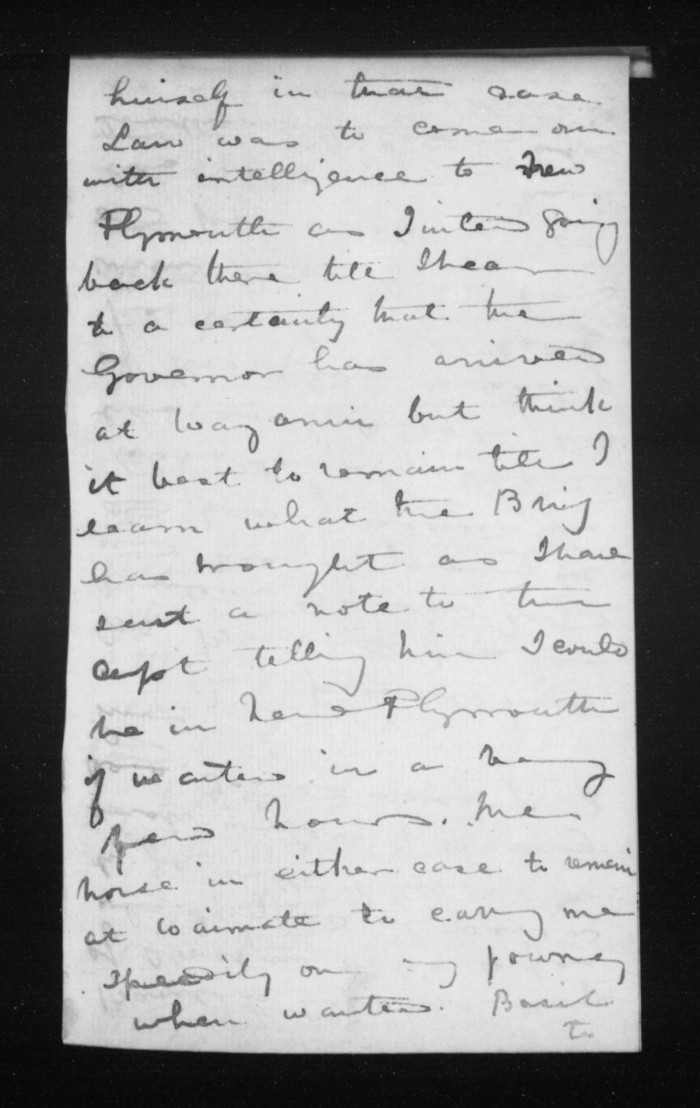 himself in that case
Law was to come on
with intelligence to New
Plymouth as I intend going
back there till I hear
to a certainty that the
Governor has arrived
at but think
it best to remain till I
learn what the Brig
has brought as I have
sent a note to the
capt telling him I could
be in New Plymouth
if wanted in a very
few hours. The
horse in either case to remain
at Waimate to carry me
speedily on my journey
when wanted. Basil
to